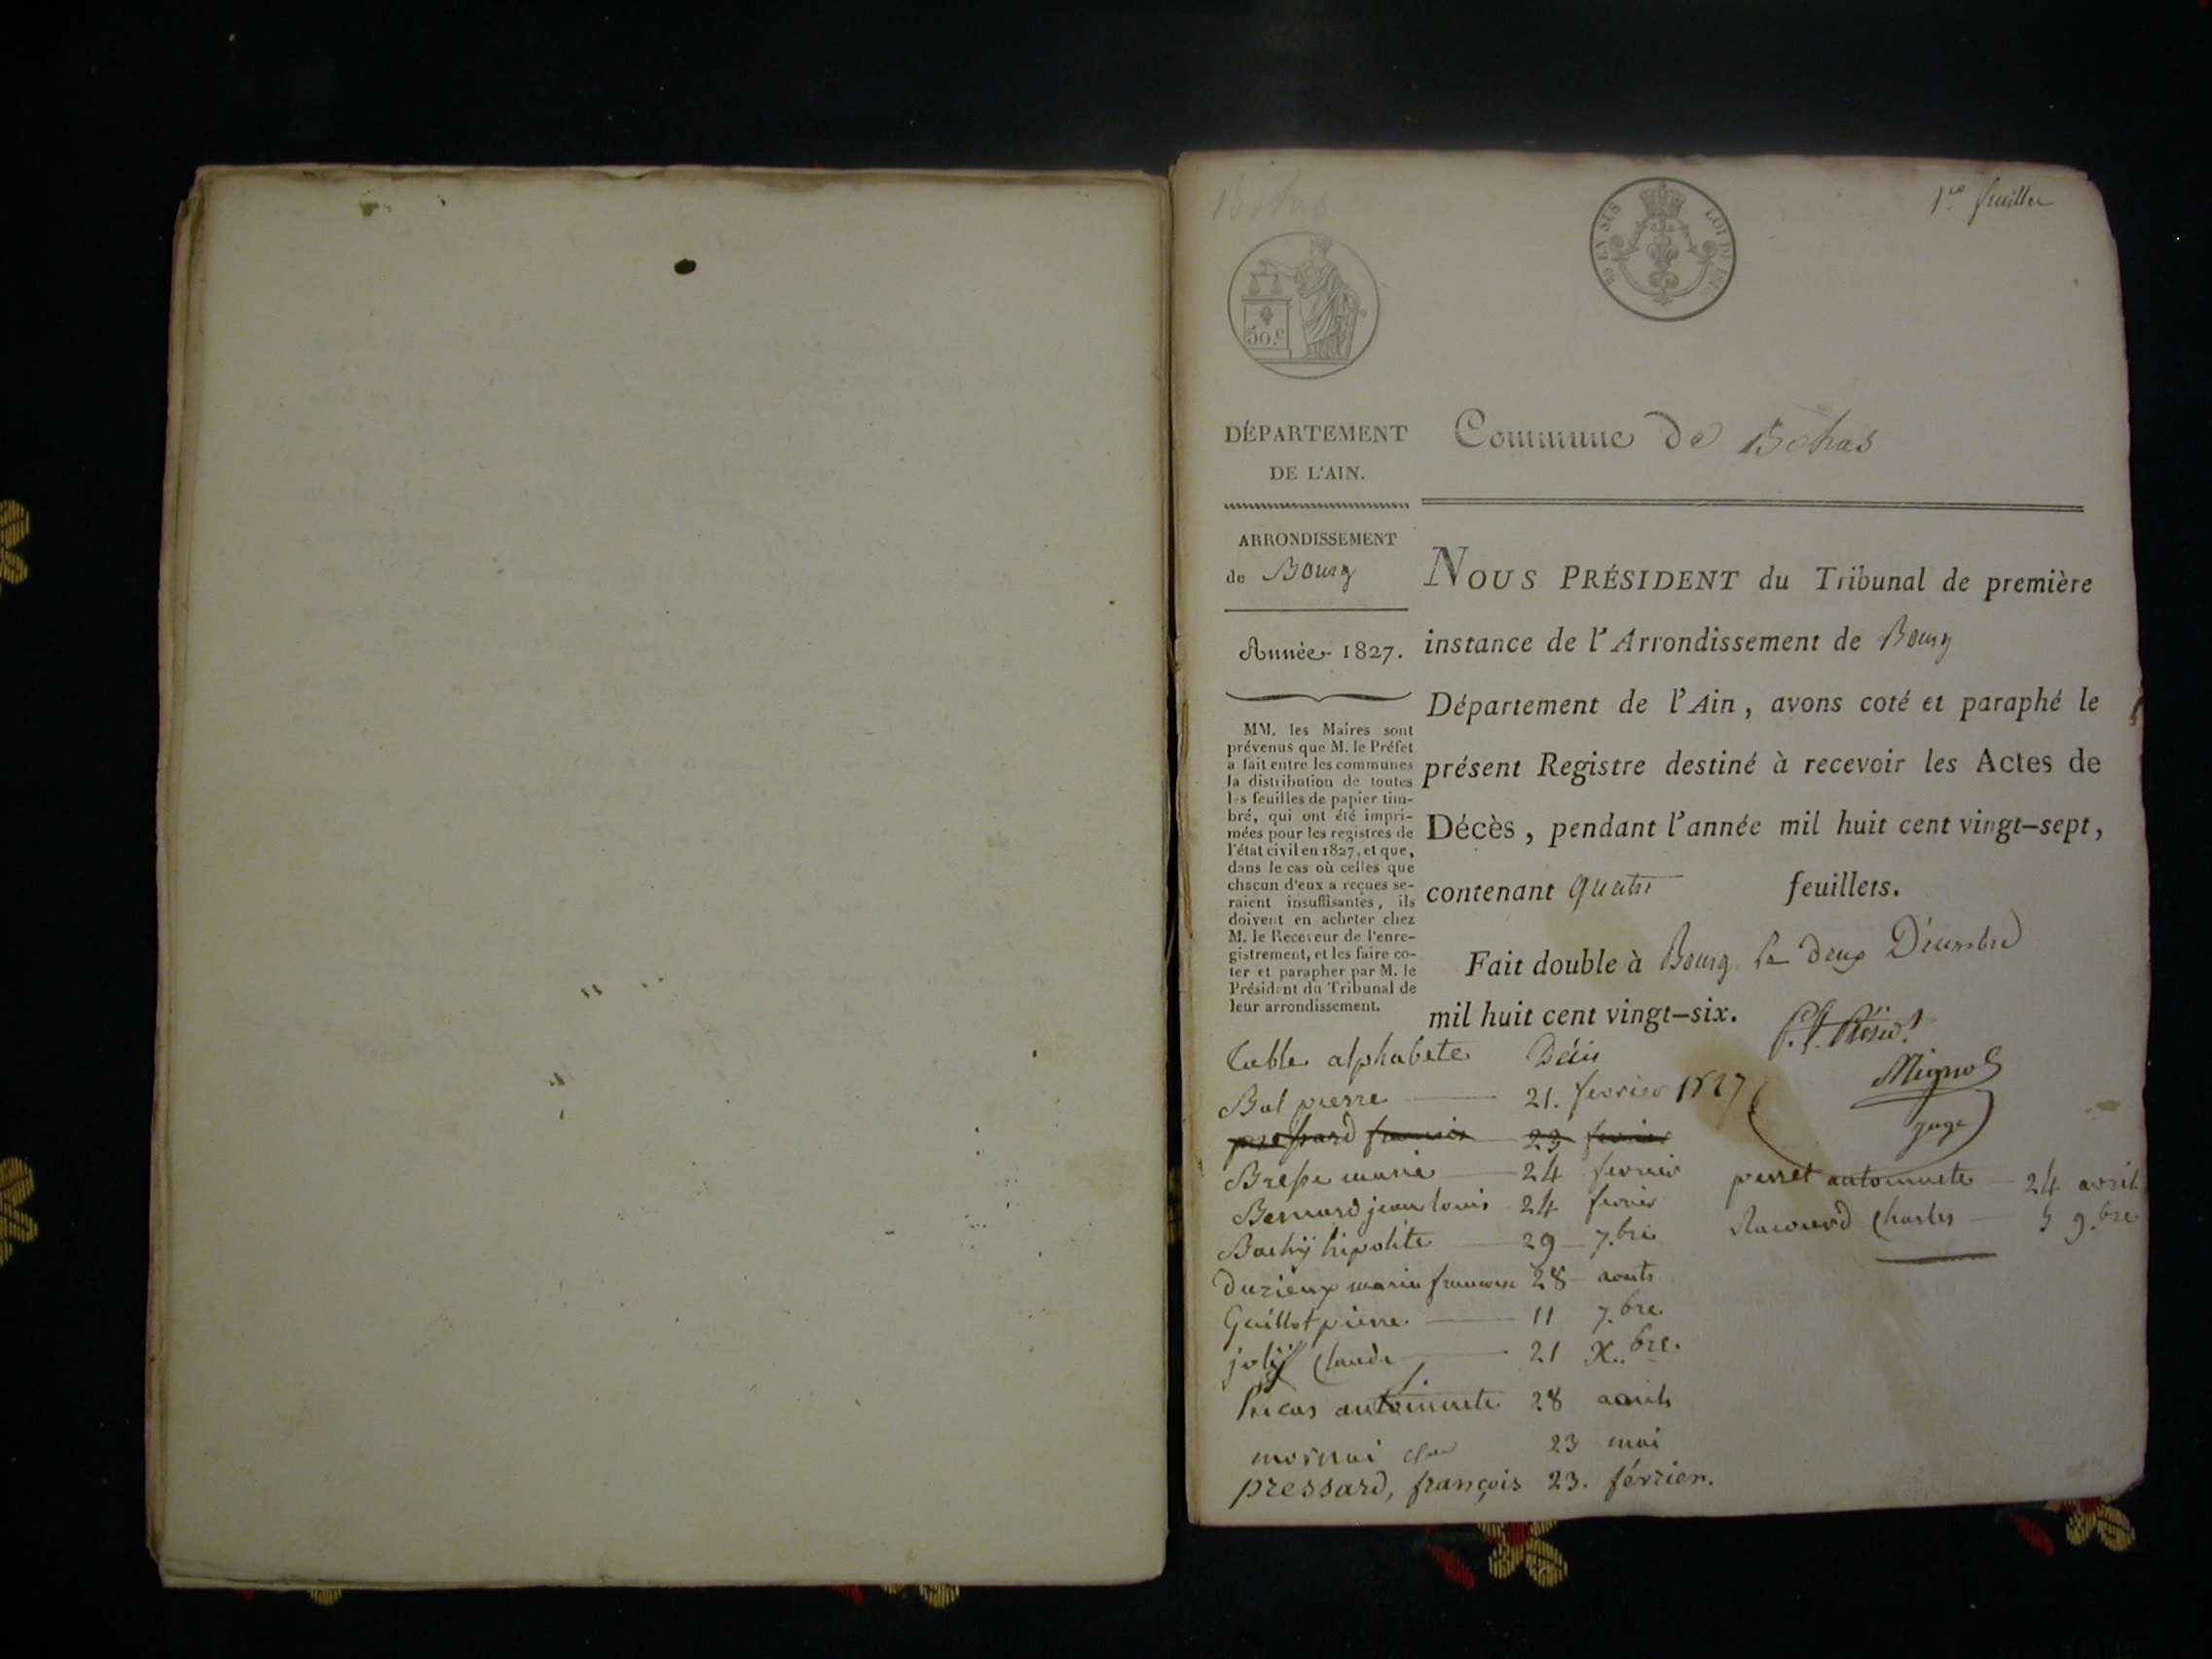 Bohas
1er feuillet
EN SUS
LOI DE
50.c
DÉPARTEMENT
DE L'AIN.
Commune de Bohas
ARRONDISSEMENT
de Bourg
Année 1827.
MM. les Maires sont
prévenus que M. le Préfet
a fait entre les communes
la distribution de toutes
les feuilles de papier tim-
bré, qui ont été impri-
mées pour les registres de
l'état civil en 1827, et que,
dans le cas où celles que
chacun d'eux a reçues se-
raient insuffisantes, ils
doivent en acheter chez
M. le Receveur de l'enre-
gistrement, et les faire co-
ter et parapher par M. le
Président du Tribunal de
leur arrondissement.
NOUS PRÉSIDENT du Tribunal de première
instance de l'Arrondissement de Bourg
Département de l'Ain, avons coté et paraphé le
présent Registre destiné à recevoir les Actes de
Décès, pendant l'année mil huit cent vingt-sept,
contenant quatre feuillets.
Fait double à Bourg le deux Décembre
mil huit cent vingt-six.
Mignot
juge
table alphabete Décès
Bal pierre 21. fevrier 1827
pressard francois 23 fevrier
Bresse marie 24 fevrier
Bernard jean louis 24 fevrier
Bachÿ hipolite 29 7.bre
Durieux marie francoise 28 aouts
Guillot pierre 11 7.bre
jolÿ Claude 21 X.bre.
Lucas antoinnete 28 avrils
mornai 23 mai
pressard, françois 23. février.
perret antoinnete 24 avril
Charles 5 9.bre